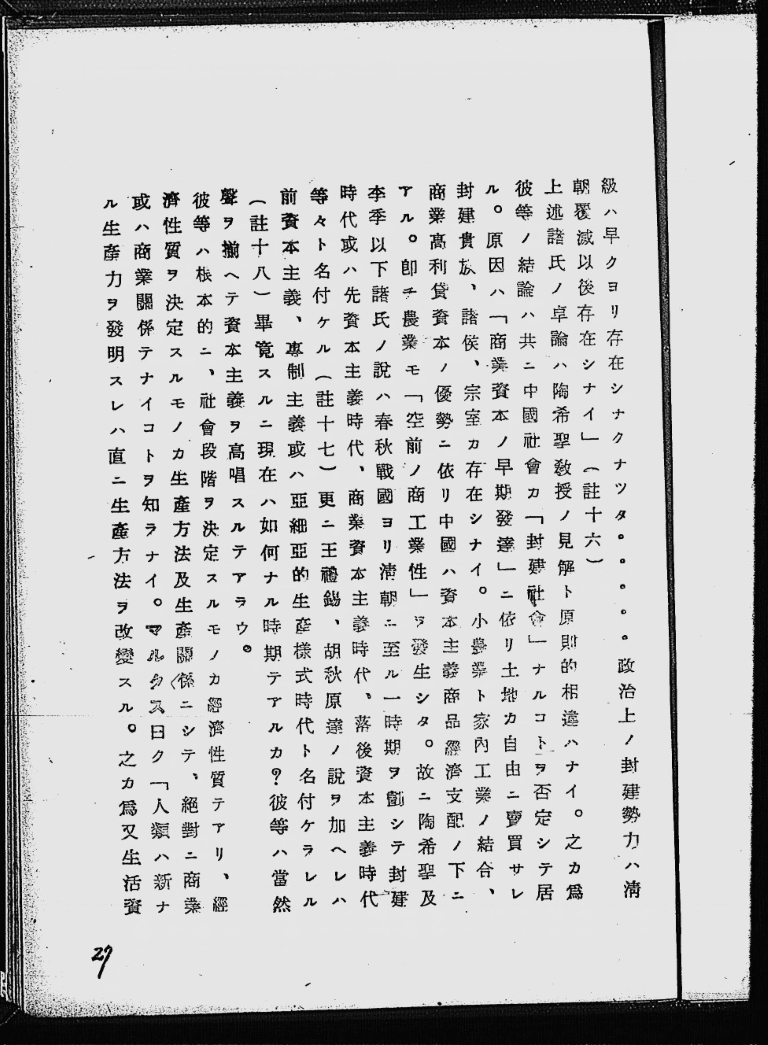 級ハ早クヨリ存在シナクナツタ。。。。。政治上ノ封建勢力ハ淸
朝覆滅以後存在シナイ」(註十六)
上述諸氏ノ卓論ハ陶希聖敎授ノ見解ト原則的相違ハナイ。之カ爲
彼等ノ結論ハ共ニ中國社會カ「封建社會」ナルコトヲ否定シテ居
ル。原因ハ「商業資本ノ早期發達」ニ依リ土地カ自由ニ賣買サレ
封建貴族、諸侯、宗室カ存在シナイ。小農業ト家內工業ノ結合、
商業高利貸資本ノ優勢ニ依リ中國ハ資本主義商品經濟支配ノ下ニ
アル。卽チ農業モ「空前ノ商工業性」ヲ發生シタ。故ニ陶希聖及
李季以下諸氏ノ說ハ春秋戰國ヨリ淸朝ニ至ル一時期ヲ劃シテ封建
時代或ハ先資本主義時代、商業資本主義時代、落後資本主義時代
等々ト名付ケル(註十七)更ニ王禮錫、胡秋原達ノ說ヲ加ヘレハ
前資本主義、專制主義或ハ亞細亞的生產樣式時代ト名付ケラレル
(註十八)畢竟スルニ現在ハ如何ナル時期テアルカ?彼等ハ當然
聲ヲ揃ヘテ資本主義ヲ高唱スルテアラウ。
彼等ハ根本的ニ、社會段階ヲ決定スルモノカ經濟性質テアリ、經
濟性質ヲ決定スルモノカ生產方法及生產關係ニシテ、絕對ニ商業
或ハ商業關係テナイコトヲ知ラナイ。マルクス曰ク「人類ハ新ナ
ル生產力ヲ發明スレハ直ニ生產方法ヲ改變スル。之カ爲又生活資
27